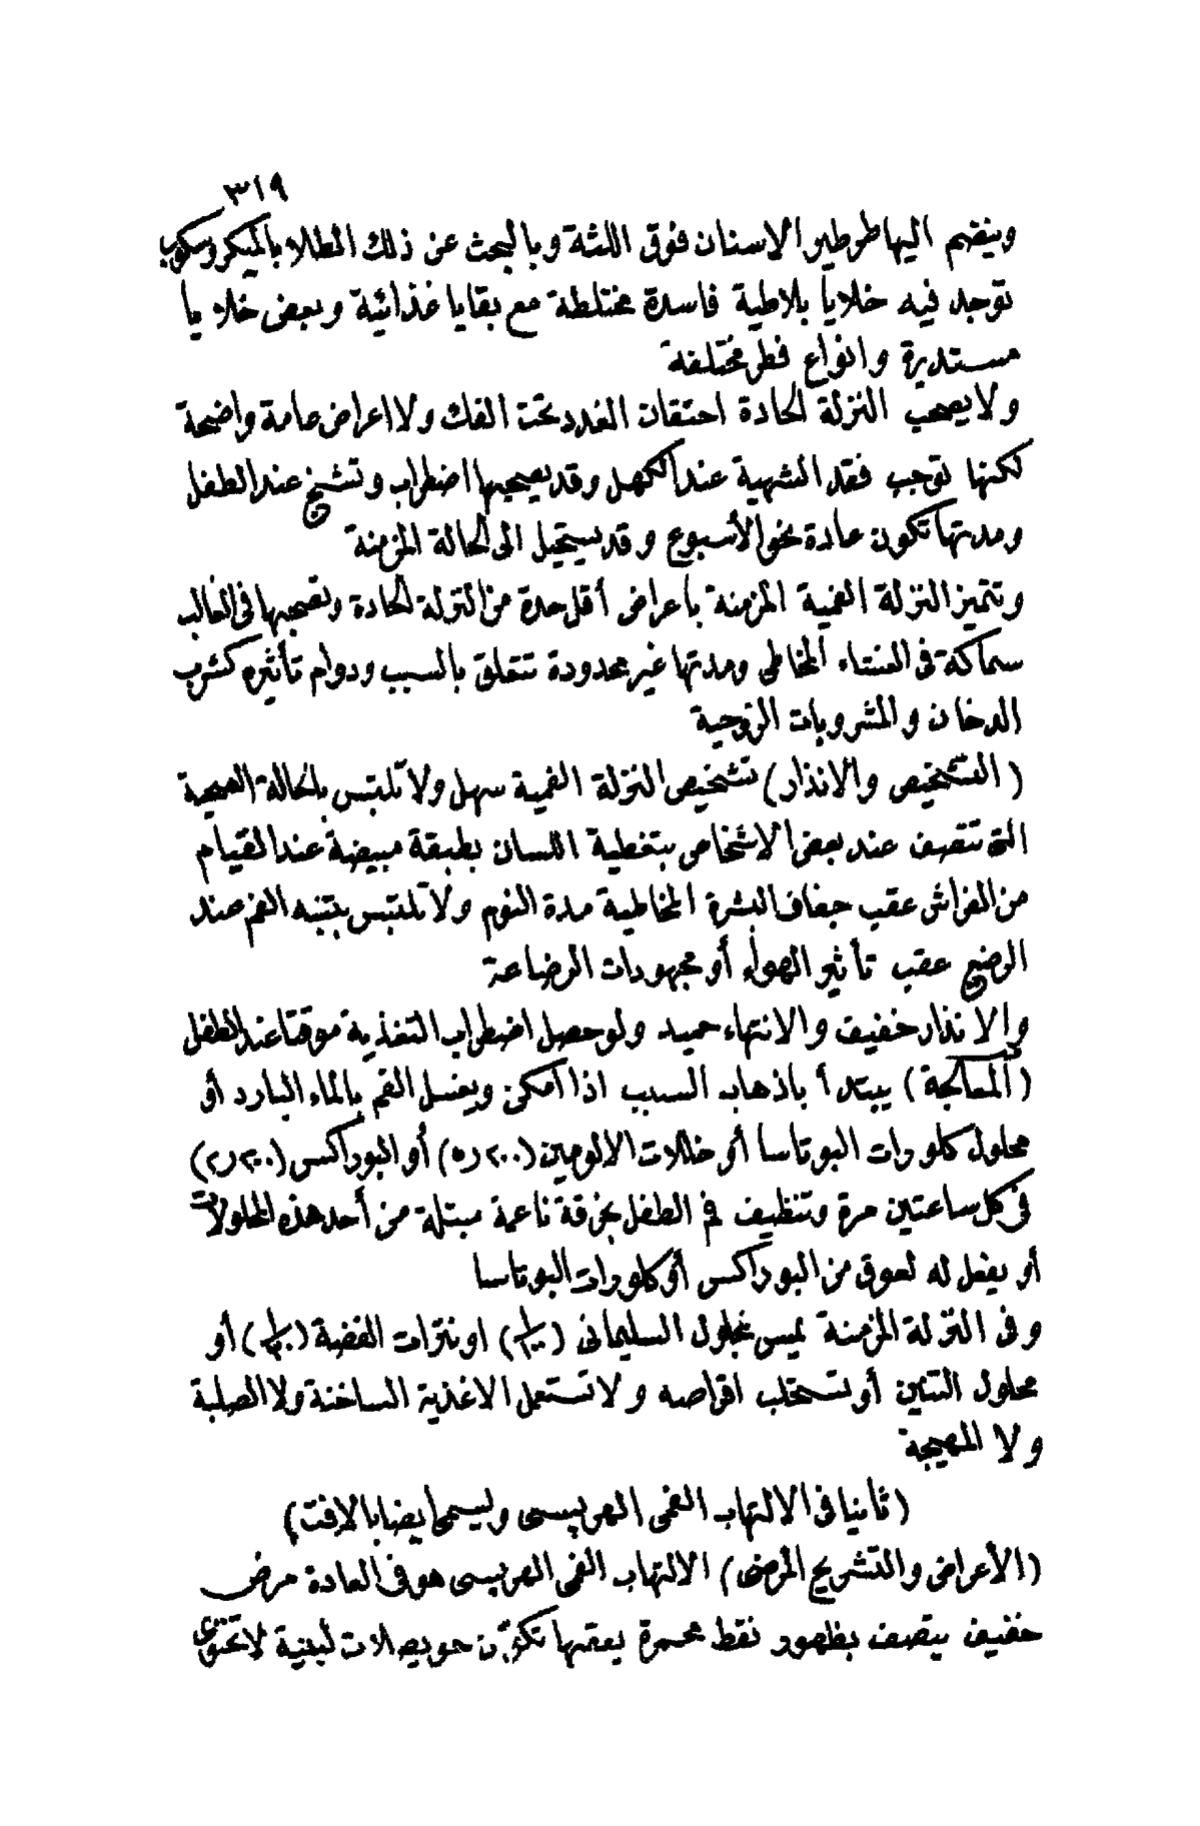 ٣١٩
وينضم اليها طرطير الاسنان فوق اللثة وبالبحث عن ذلك الطلاء بالميكروسكوب
توجد فيه خلايا بلاطية فاسدة مختلطة مع بقايا غذائية وبعض خلايا
مستديرة وانواع فطر مختلفة
ولا يصحب النزلة الحادة احتقان الغدد تحت الفك ولا اعراض عامة واضحة
لكنها توجب فقد الشهية عند الكهل وقد يصحبها اضطراب وتشنج عند الطفل
ومدتها تكون عادة نحو الأسبوع وقد يستحيل الى الحالة المزمنة
وتتميز النزلة الفمية المزمنة بأعراض أقل حدة من النزلة الحادة وتصحبها فى الغالب
سماكة فى الغشاء المخاطى ومدتها غير محدودة تتعلق بالسبب ودوام تأثيره كشرب
الدخان والمشروبات الروحية
(التشخيص والانذار) تشخيص النزلة الفمية سهل ولا تلتبس بالحالة الصحية
التى تتصف عند بعض الاشخاص بتغطية اللسان بطبقة مبيضة عند القيام
من الفراش عقب جفاف البشرة المخاطية مدة النوم ولا تلتبس بتنبه الفم عند
الرضيع عقب تأثير الهواء أو مجهودات الرضاعة
والانذار خفيف والانتهاء حميد ولو حصل اضطراب التغذية موقتا عند الطفل
(المعالجة) يبتدأ باذهاب السبب اذا امكن ويغسل الفم بالماء البارد أو
محلول كلورات البوتاسا أو خلات الالومين (٢٠٠ ر٥) أو البوراكس (٢٠٠ ر٢)
فى كل ساعتين مرة وتنظيف فم الطفل بخرقة ناعمة مبتلة من أحد هذه المحلولات
أو يفعل له لعوق من البوراكس أو كلورات البوتاسا
وفى النزلة المزمنة يمس بمحلول السليمانى (١/١٠٠٠) او نترات الفضة (١/٢٠) أو
محلول التنين أو تستحلب اقراصه ولا تستعمل الاغذية الساخنة ولا الصلبة
ولا المهيجة
(ثانيا فى الالتهاب الفمى الهربيسى ويسمى ايضا بالافت)
(الأعراض والتشريح المرضى) الالتهاب الفمى الهربيسى هو فى العادة مرض
خفيف يتصف بظهور نقط محمرة يعقبها تكوّن حويصلات لبنية لا تحتوى